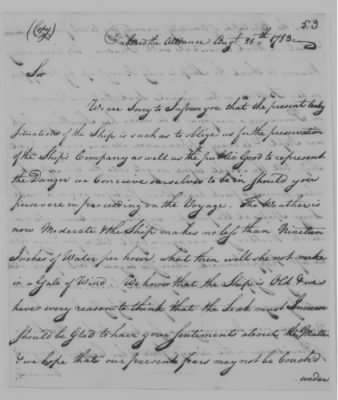 (Copy)
53
On board the Alliance Augt 26th 1783
Sir
We are Sorry to Inform you that the present
Situation of the Ship is such as to oblige us for the preservation
of the Ship's Company as well as the public Good to represent
the Danger we Conceive ourselves to be in should you
persevere in proceeding on the Voyage. The Weather is
now Moderate & the Ship makes no less than Nineteen
Inches of Water per hour, what then will she not make
in a Gale of Wind. We know that the Ship is Old & we
have every reason to think that the Leak must Increase
should be Glad to have your Sentiments about the Matter
& we hope that our present fears may not be Couch'd
under